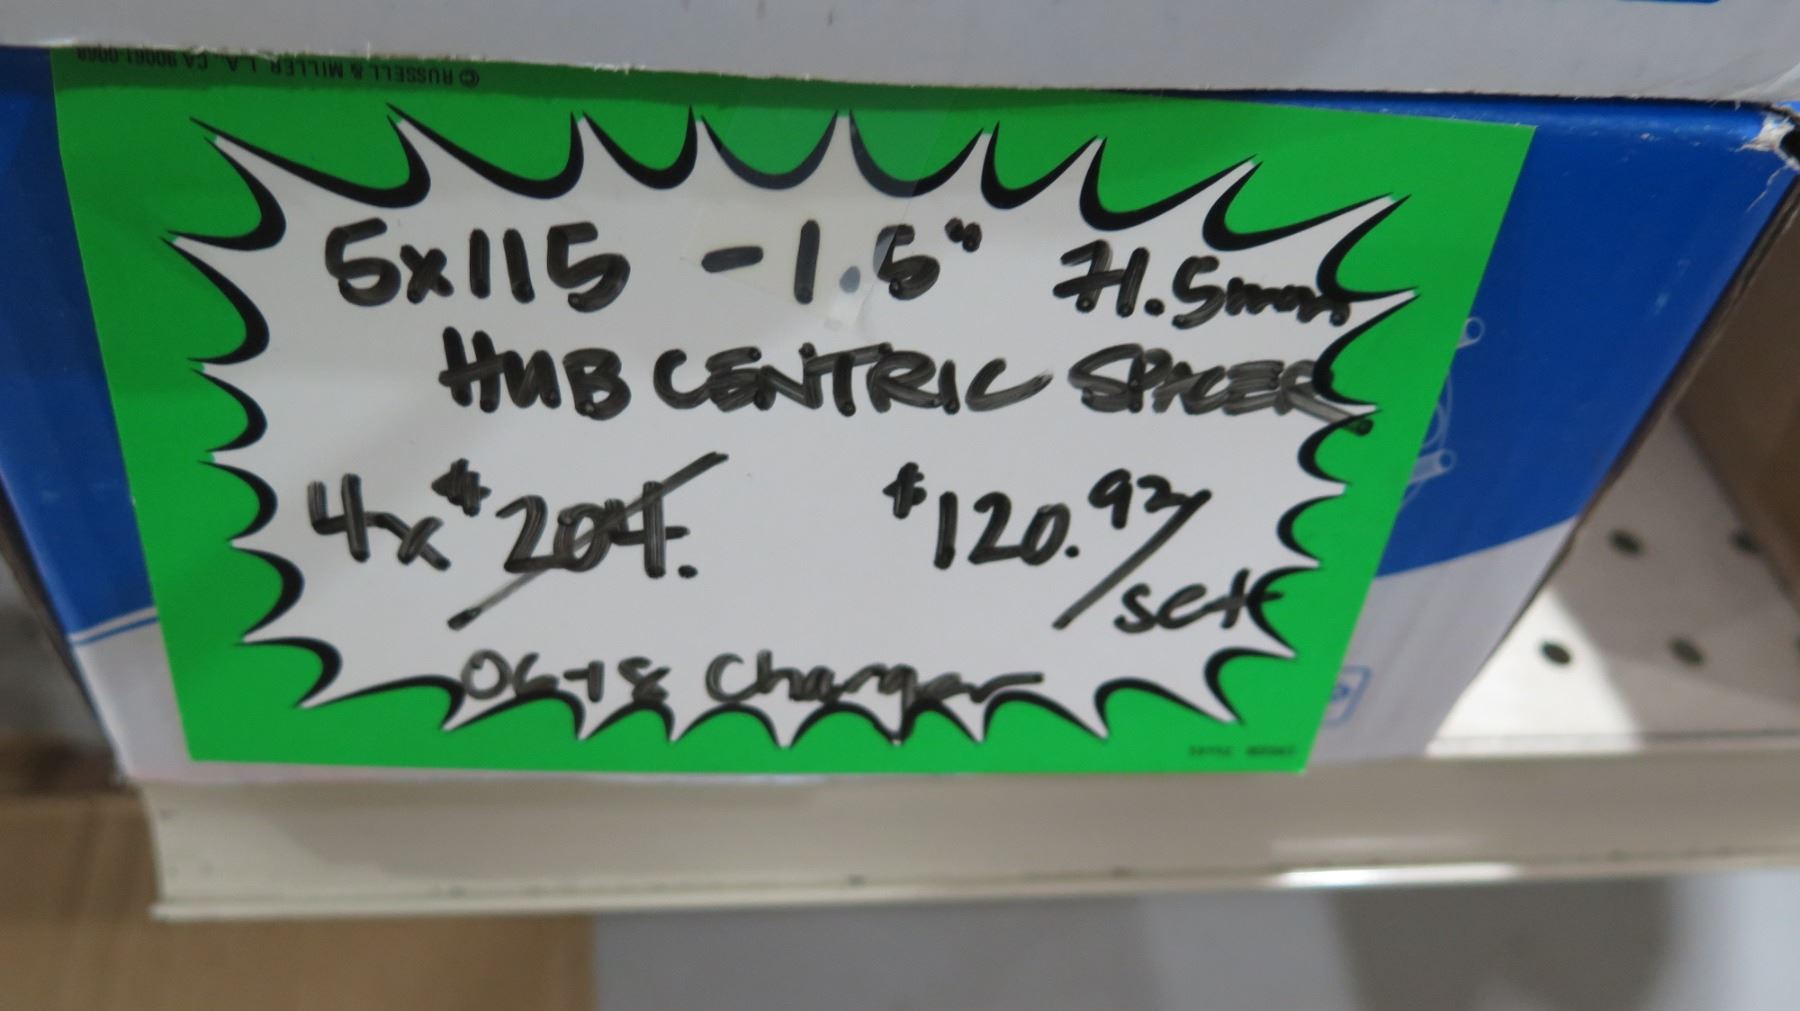 © RUSSELL & MILLER L.A., CA 90061-0068
5x115 - 1.5" 71.5mm
HUB CENTRIC SPACER
4x $204. $120.92/set
06-18 Charger